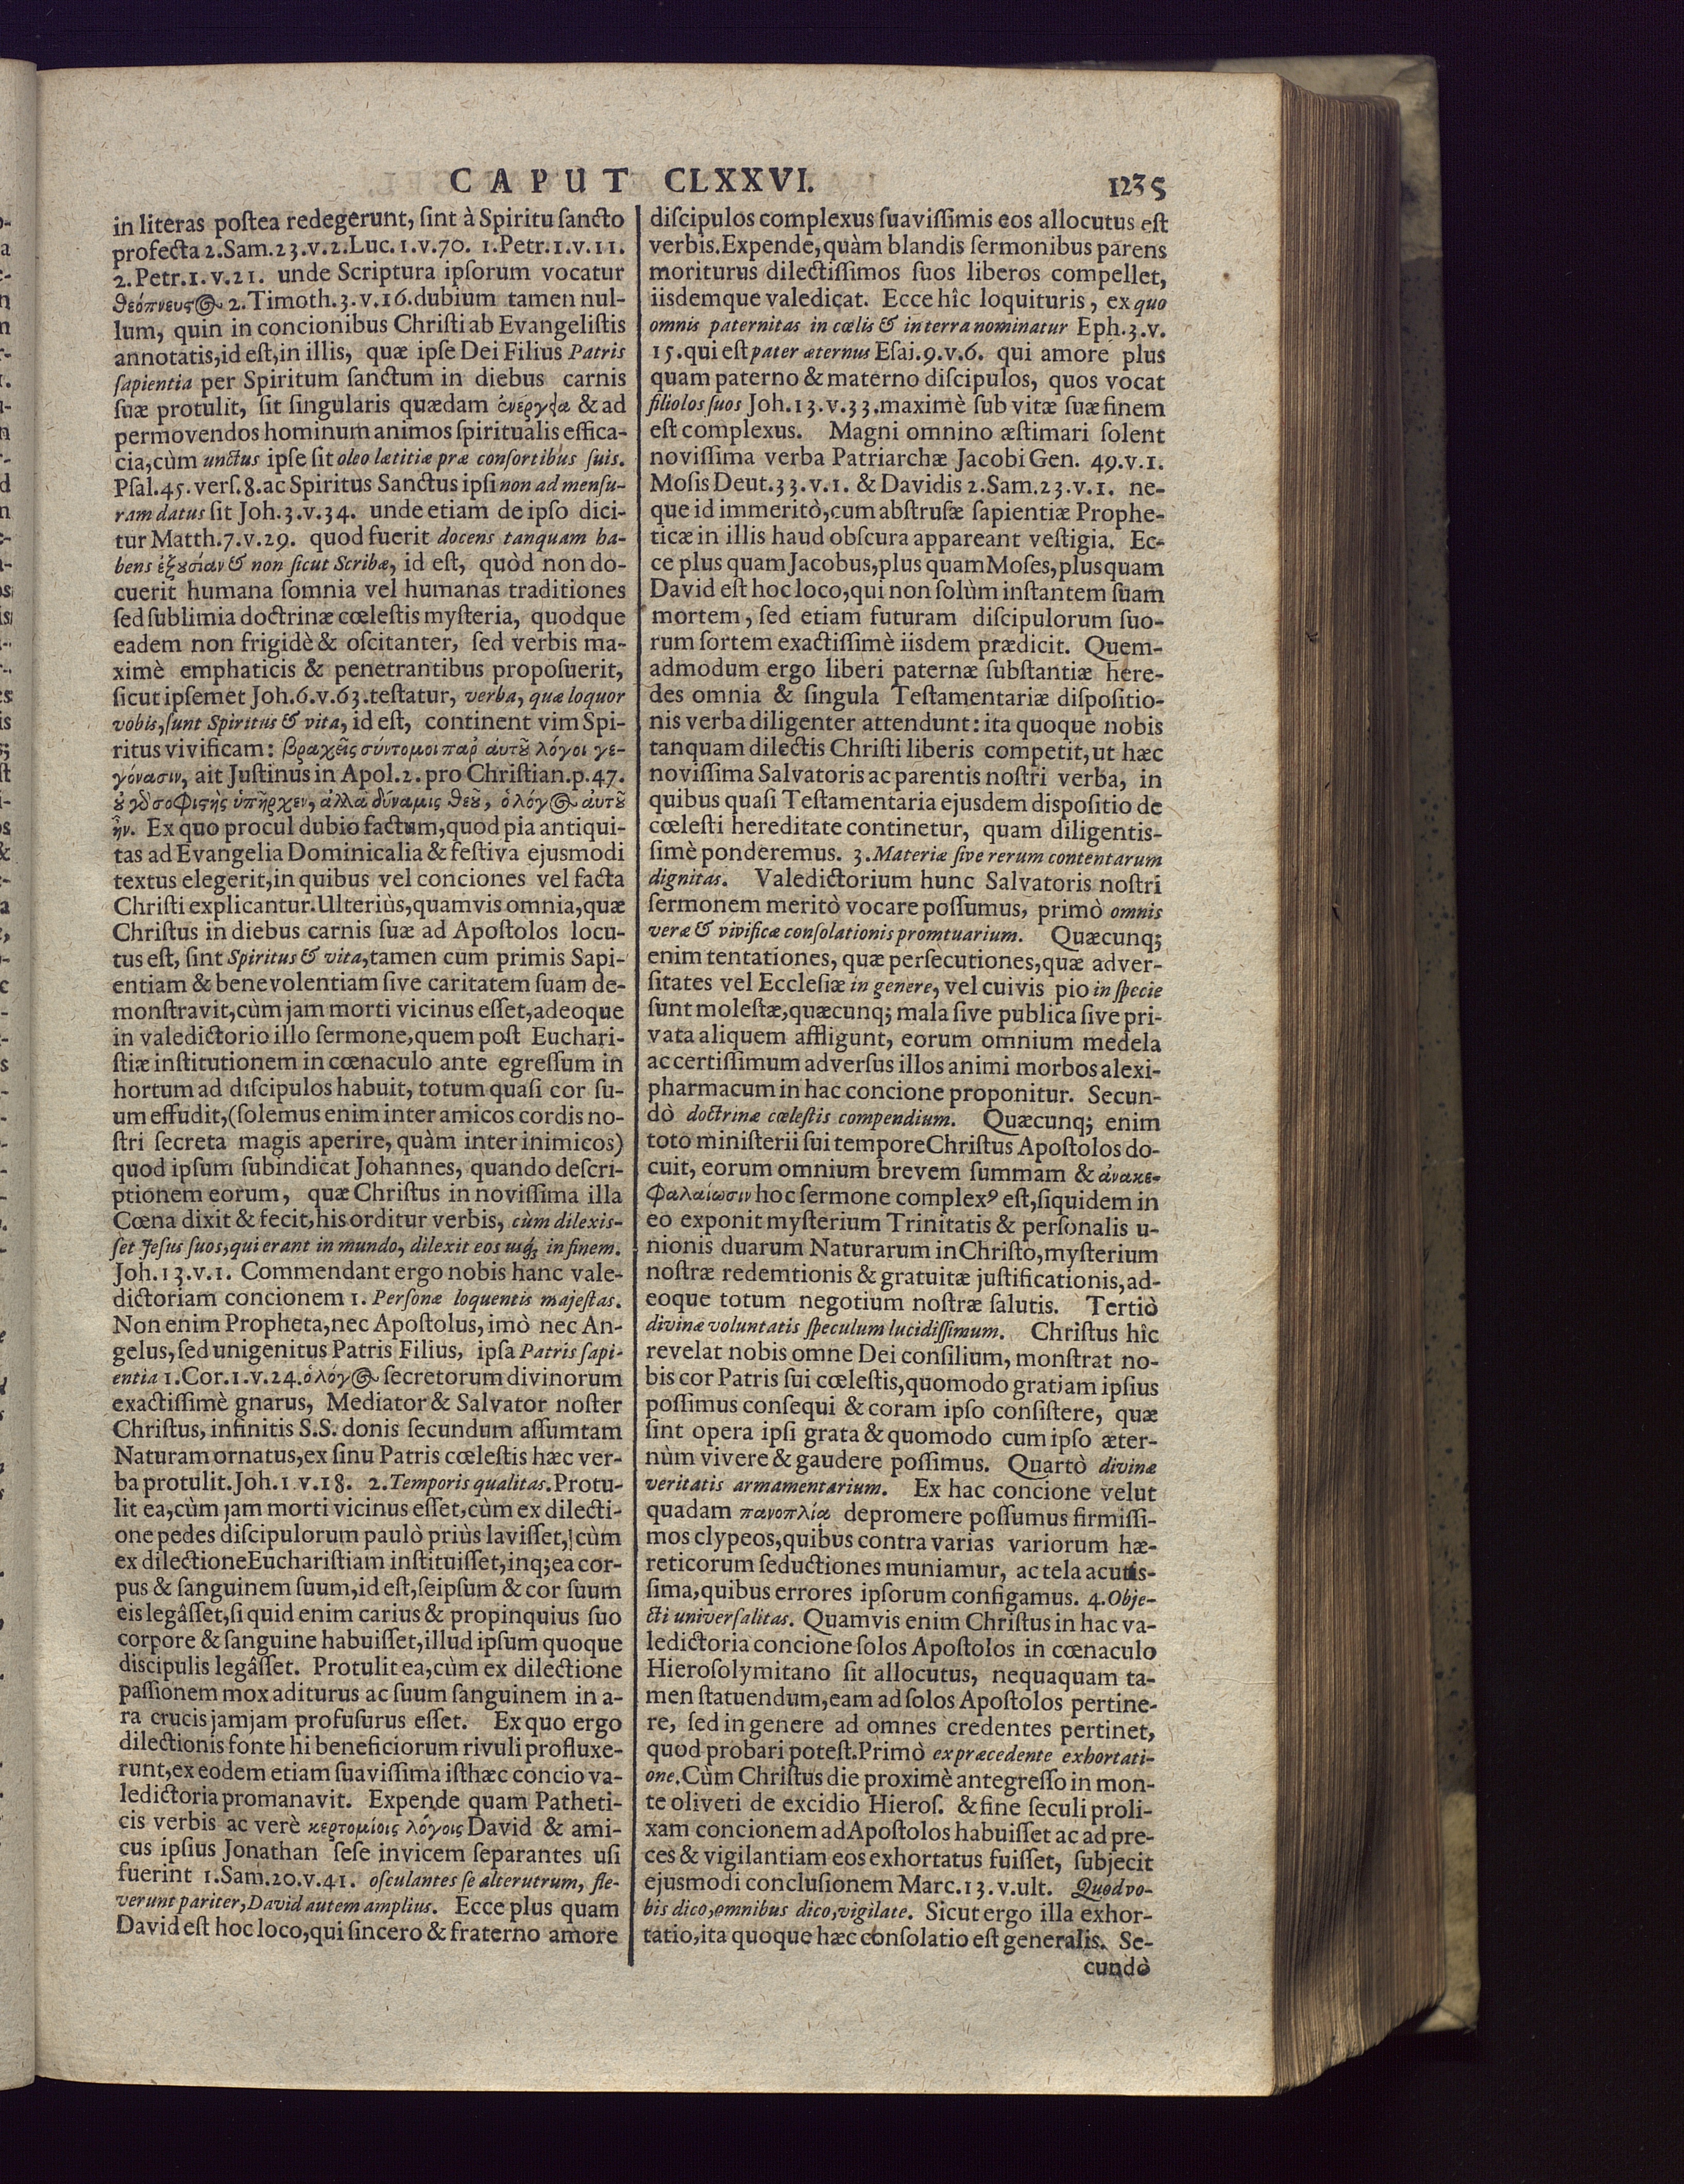 CAPUT CLXXVI. 1235
in literas poſtea redegerunt, ſint à Spiritu ſancto
profecta 2.Sam.23.v.2.Luc.1.v.70. 1.Petr.1.v.11.
2.Petr.1.v.21. unde Scriptura ipſorum vocatur
θεόπνευςος 2.Timoth.3.v.16.dubium tamen nul-
lum, quin in concionibus Chriſti ab Evangeliſtis
annotatis,id eſt,in illis, quæ ipſe Dei Filius Patris
ſapientia per Spiritum ſanctum in diebus carnis
ſuæ protulit, ſit ſingularis quædam ἐνέργεια & ad
permovendos hominum animos ſpiritualis effica-
cia,cùm unctus ipſe ſit oleo lætitiæ præ conſortibus ſuis.
Pſal.45.verſ.8.ac Spiritus Sanctus ipſi non ad menſu-
ram datus ſit Joh.3.v.34. unde etiam de ipſo dici-
tur Matth.7.v.29. quod fuerit docens tanquam ha-
bens ἐξουσίαν & non ſicut Scribæ, id eſt, quòd non do-
cuerit humana ſomnia vel humanas traditiones
ſed ſublimia doctrinæ cœleſtis myſteria, quodque
eadem non frigidè & oſcitanter, ſed verbis ma-
ximè emphaticis & penetrantibus propoſuerit,
ſicut ipſemet Joh.6.v.63.teſtatur, verba, quæ loquor
vobis,ſunt Spiritus & vita, id eſt, continent vim Spi-
ritus vivificam: βραχεῖς σύντομοι παρ αὐτοῦ λόγοι γε-
γόνασιν, ait Juſtinus in Apol.2. pro Chriſtian.p.47.
οὐ γὸ σοφιςὴς ὑπῆρχεν, ἀλλὰ δύναμις θεοῦ, ὁ λόγος αὐτοῦ
ἦν. Ex quo procul dubio factum,quod pia antiqui-
tas ad Evangelia Dominicalia & feſtiva ejusmodi
textus elegerit,in quibus vel conciones vel facta
Chriſti explicantur.Ulteriùs,quamvis omnia,quæ
Chriſtus in diebus carnis ſuæ ad Apoſtolos locu-
tus eſt, ſint Spiritus & vita,tamen cum primis Sapi-
entiam & benevolentiam ſive caritatem ſuam de-
monſtravit,cùm jam morti vicinus eſſet,adeoque
in valedictorio illo ſermone,quem poſt Euchari-
ſtiæ inſtitutionem in cœnaculo ante egreſſum in
hortum ad diſcipulos habuit, totum quaſi cor ſu-
um effudit,(ſolemus enim inter amicos cordis no-
ſtri ſecreta magis aperire, quàm inter inimicos)
quod ipſum ſubindicat Johannes, quando deſcri-
ptionem eorum, quæ Chriſtus in noviſſima illa
Cœna dixit & fecit,his orditur verbis, cùm dilexiſ-
ſet Jeſus ſuos,qui erant in mundo, dilexit eos usq; in finem.
Joh.13.v.1. Commendant ergo nobis hanc vale-
dictoriam concionem 1. Perſonæ loquentis majeſtas.
Non enim Propheta,nec Apoſtolus,imò nec An-
gelus,ſed unigenitus Patris Filius, ipſa Patris ſapi-
entia 1.Cor.1.v.24.ὁ λόγος ſecretorum divinorum
exactiſſimè gnarus, Mediator & Salvator noſter
Chriſtus, infinitis S.S. donis ſecundum aſſumtam
Naturam ornatus,ex ſinu Patris cœleſtis hæc ver-
ba protulit.Joh.1.v.18. 2.Temporis qualitas.Protu-
lit ea,cùm jam morti vicinus eſſet,cùm ex dilecti-
one pedes diſcipulorum paulò priùs laviſſet,cùm
ex dilectione Euchariſtiam inſtituiſſet,inq; ea cor-
pus & ſanguinem ſuum,id eſt,ſeipſum & cor ſuum
eis legâſſet,ſi quid enim carius & propinquius ſuo
corpore & ſanguine habuiſſet,illud ipſum quoque
discipulis legâſſet. Protulit ea,cùm ex dilectione
paſſionem mox aditurus ac ſuum ſanguinem in a-
ra crucis jamjam profuſurus eſſet. Ex quo ergo
dilectionis fonte hi beneficiorum rivuli profluxe-
runt,ex eodem etiam ſuaviſſima iſthæc concio va-
ledictoria promanavit. Expende quam Patheti-
cis verbis ac verè κερτομίοις λόγοις David & ami-
cus ipſius Jonathan ſeſe invicem ſeparantes uſi
fuerint 1.Sam.20.v.41. oſculantes ſe alterutrum, fle-
verunt pariter,David autem amplius. Ecce plus quam
David eſt hoc loco,qui ſincero & fraterno amore
diſcipulos complexus ſuaviſſimis eos allocutus eſt
verbis.Expende,quàm blandis ſermonibus parens
moriturus dilectiſſimos ſuos liberos compellet,
iisdemque valedicat. Ecce hîc loquituris, ex quo
omnis paternitas in cœlis & in terra nominatur Eph.3.v.
15.qui eſt pater æternus Eſai.9.v.6. qui amore plus
quam paterno & materno diſcipulos, quos vocat
filiolos ſuos Joh.13.v.33.maximè ſub vitæ ſuæ finem
eſt complexus. Magni omnino æſtimari ſolent
noviſſima verba Patriarchæ Jacobi Gen. 49.v.1.
Moſis Deut.33.v.1. & Davidis 2.Sam.23.v.1. ne-
que id immeritò,cum abſtruſæ ſapientiæ Prophe-
ticæ in illis haud obſcura appareant veſtigia. Ec-
ce plus quam Jacobus,plus quam Moſes,plus quam
David eſt hoc loco,qui non ſolùm inſtantem ſuam
mortem, ſed etiam futuram diſcipulorum ſuo-
rum ſortem exactiſſimè iisdem prædicit. Quem-
admodum ergo liberi paternæ ſubſtantiæ here-
des omnia & ſingula Teſtamentariæ diſpoſitio-
nis verba diligenter attendunt: ita quoque nobis
tanquam dilectis Chriſti liberis competit,ut hæc
noviſſima Salvatoris ac parentis noſtri verba, in
quibus quaſi Teſtamentaria ejusdem dispoſitio de
cœleſti hereditate continetur, quam diligentis-
ſimè ponderemus. 3.Materiæ ſive rerum contentarum
dignitas. Valedictorium hunc Salvatoris noſtri
ſermonem meritò vocare poſſumus, primò omnis
veræ & vivificæ conſolationis promtuarium. Quæcunq;
enim tentationes, quæ perſecutiones,quæ adver-
ſitates vel Eccleſiæ in genere, vel cuivis pio in ſpecie
ſunt moleſtæ,quæcunq; mala ſive publica ſive pri-
vata aliquem affligunt, eorum omnium medela
ac certiſſimum adverſus illos animi morbos alexi-
pharmacum in hac concione proponitur. Secun-
dò doctrinæ cœleſtis compendium. Quæcunq; enim
toto miniſterii ſui tempore Chriſtus Apoſtolos do-
cuit, eorum omnium brevem ſummam & ἀνακε-
φαλαίωσιν hoc ſermone complexꝰ eſt,ſiquidem in
eo exponit myſterium Trinitatis & perſonalis u-
nionis duarum Naturarum in Chriſto,myſterium
noſtræ redemtionis & gratuitæ juſtificationis,ad-
eoque totum negotium noſtræ ſalutis. Tertiò
divinæ voluntatis ſpeculum lucidiſſimum. Chriſtus hîc
revelat nobis omne Dei conſilium, monſtrat no-
bis cor Patris ſui cœleſtis,quomodo gratiam ipſius
poſſimus conſequi & coram ipſo conſiſtere, quæ
ſint opera ipſi grata & quomodo cum ipſo æter-
nùm vivere & gaudere poſſimus. Quartò divinæ
veritatis armamentarium. Ex hac concione velut
quadam πανοπλίᾳ depromere poſſumus firmiſſi-
mos clypeos,quibus contra varias variorum hæ-
reticorum ſeductiones muniamur, ac tela acutis-
ſima,quibus errores ipſorum configamus. 4.Obje-
cti univerſalitas. Quamvis enim Chriſtus in hac va-
ledictoria concione ſolos Apoſtolos in cœnaculo
Hieroſolymitano ſit allocutus, nequaquam ta-
men ſtatuendum,eam ad ſolos Apoſtolos pertine-
re, ſed in genere ad omnes credentes pertinet,
quod probari poteſt.Primò ex præcedente exhortati-
one.Cùm Chriſtus die proximè antegreſſo in mon-
te oliveti de excidio Hieroſ. & fine ſeculi proli-
xam concionem ad Apoſtolos habuiſſet ac ad pre-
ces & vigilantiam eos exhortatus fuiſſet, ſubjecit
ejusmodi concluſionem Marc.13.v.ult. Quod vo-
bis dico,omnibus dico,vigilate. Sicut ergo illa exhor-
tatio,ita quoque hæc conſolatio eſt generalis. Se-
cundò